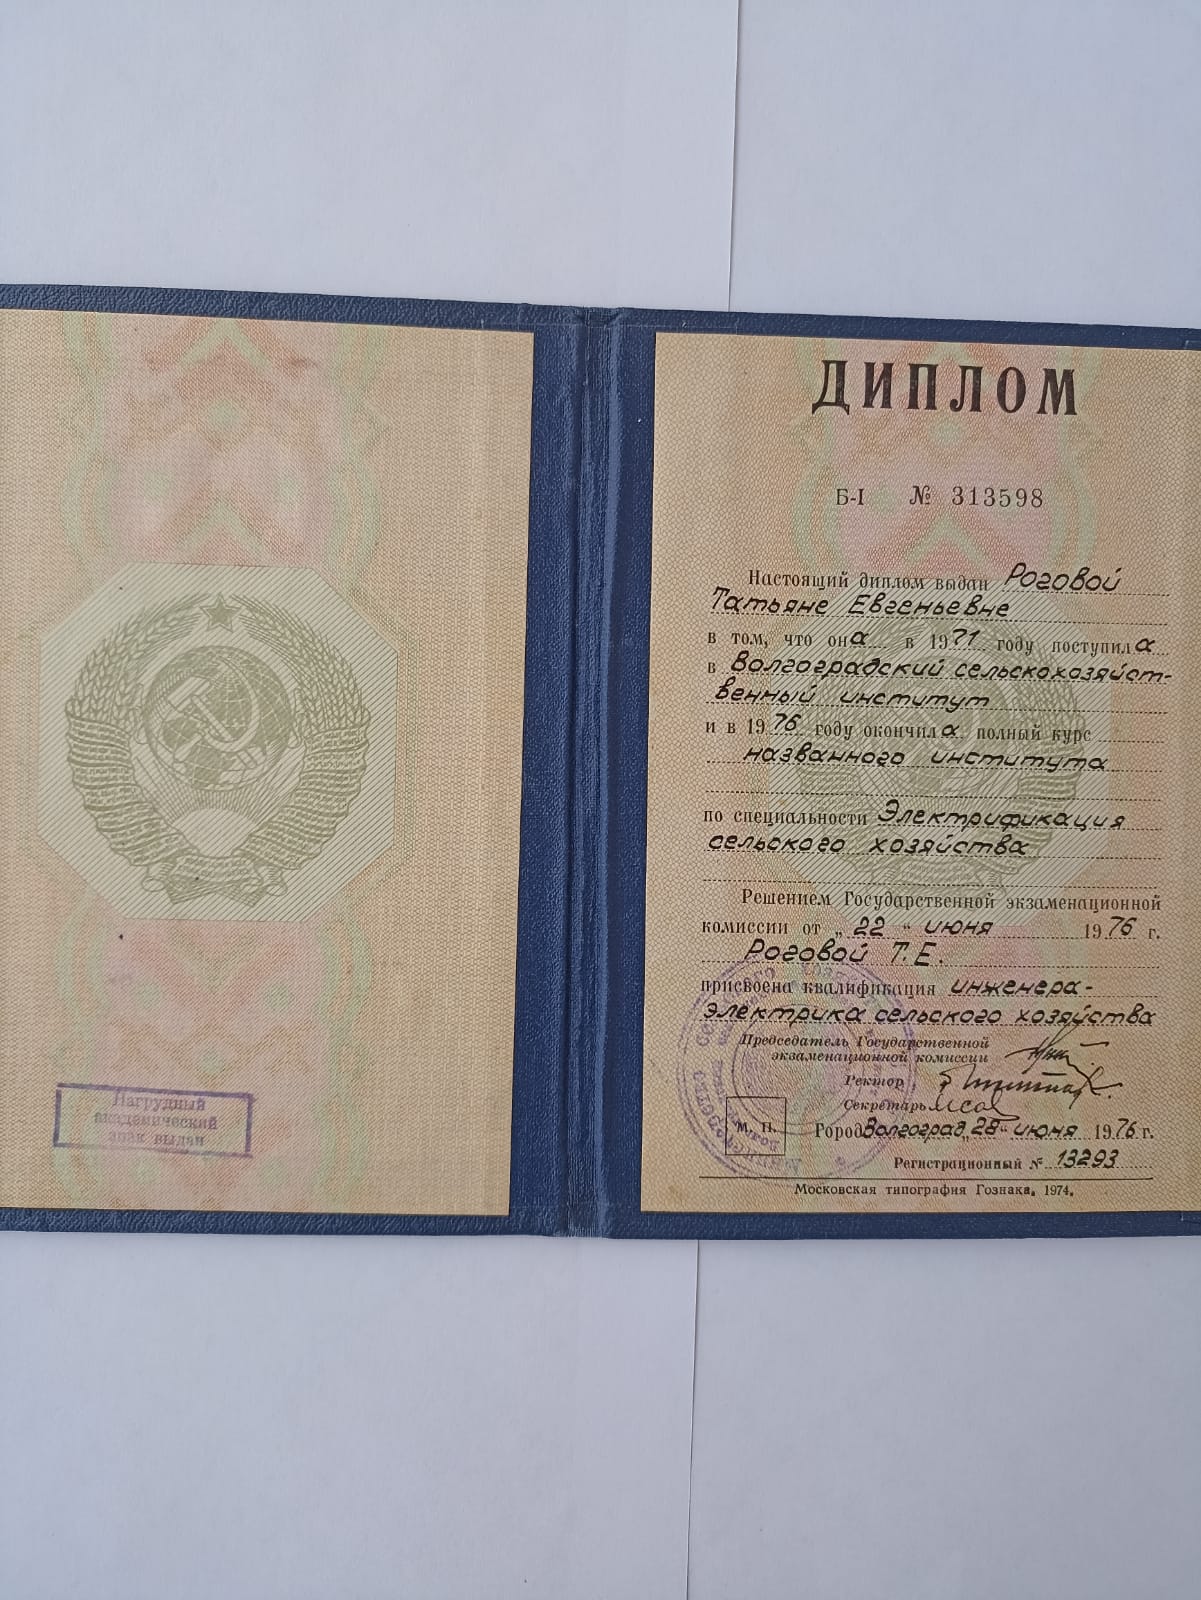 Нагрудный
академический
знак выдан
ДИПЛОМ
Б-I № 313598
Настоящий диплом выдан Роговой
Татьяне Евгеньевне
в том, что она в 1971 году поступила
в Волгоградский сельскохозяйст-
венный институт
и в 1976 году окончила полный курс
названного института
по специальности Электрификация
сельского хозяйства
Решением Государственной экзаменационной
комиссии от „22“ июня 1976 г.
Роговой Т.Е.
присвоена квалификация инженера-
электрика сельского хозяйства
Председатель Государственной
экзаменационной комиссии
Ректор
Секретарь
М. П.
Город Волгоград „28“ июня 1976 г.
Регистрационный № 13293
Московская типография Гознака. 1974.